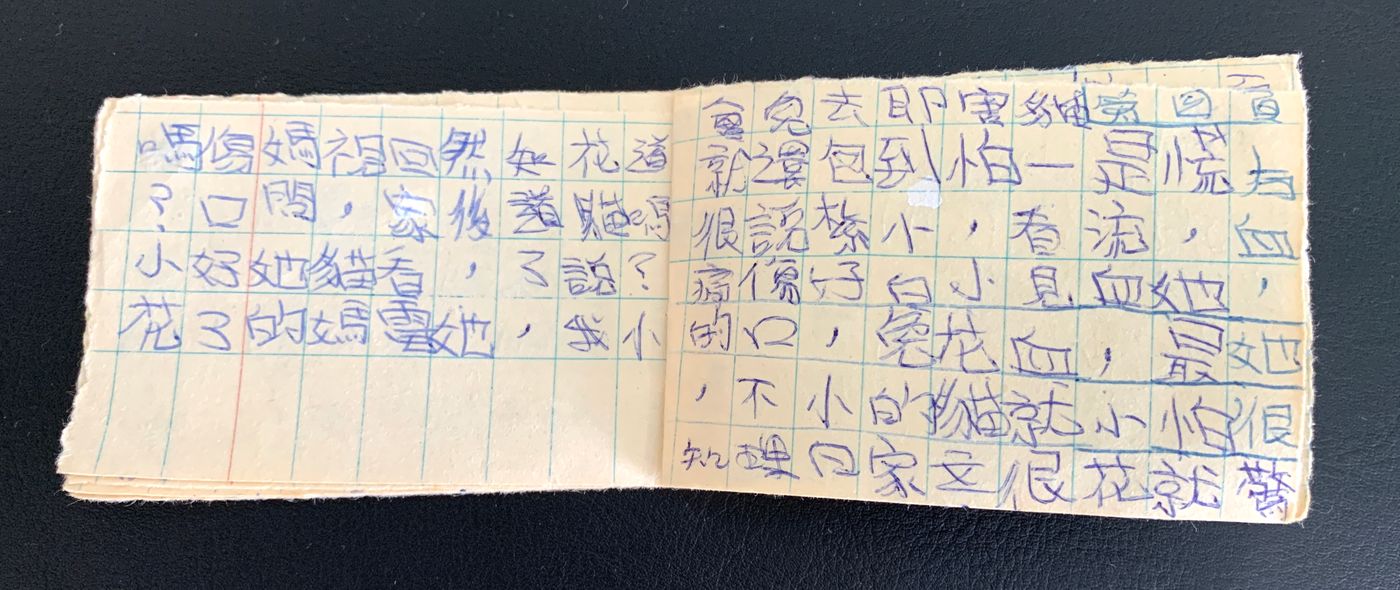 血，她很驚
慌，她最怕就
是流血，小花
貓一看見血就很
害怕，小花貓立
即到小白兔的家
去包紮好，小回
兔還說傷口不理
會就很痛的，知
道嗎？小
花貓說我
知道了，
然後，她
回家看電
視，貓媽
媽問她的
傷口好了
嗎？小花